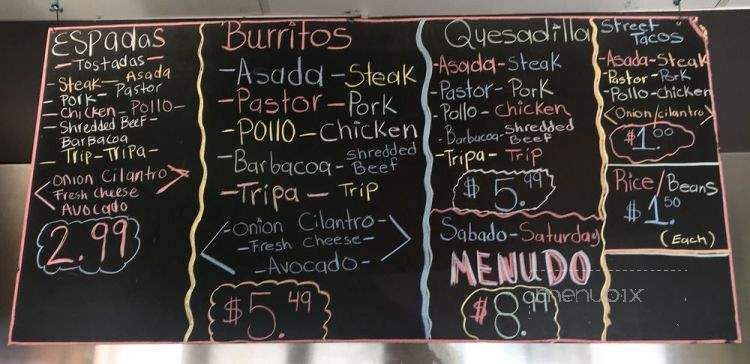 ESPADAS
- Tostadas -
- Steak - Asada
- Pork - Pastor
- Chicken - Pollo -
- Shredded Beef -
Barbacoa
- Trip - Tripa -
Onion Cilantro
Fresh Cheese
Avocado
2.99
Burritos
- Asada - Steak
- Pastor - Pork
- Pollo - Chicken
- Barbacoa - Shredded
Beef
- Tripa - Trip
- Onion Cilantro -
- Fresh Cheese -
- Avocado -
$5.49
Quesadilla
Asada - Steak
- Pastor - Pork
- Pollo - Chicken
- Barbacoa - Shredded
Beef
- Tripa - Trip
$5.99
Sabado - Saturday
MENUDO
$8.99
Street
Tacos
- Asada - Steak
Pastor - Pork
- Pollo - Chicken
Onion/cilantro
$1.00
Rice/Beans
$1.50
(Each)
menupix